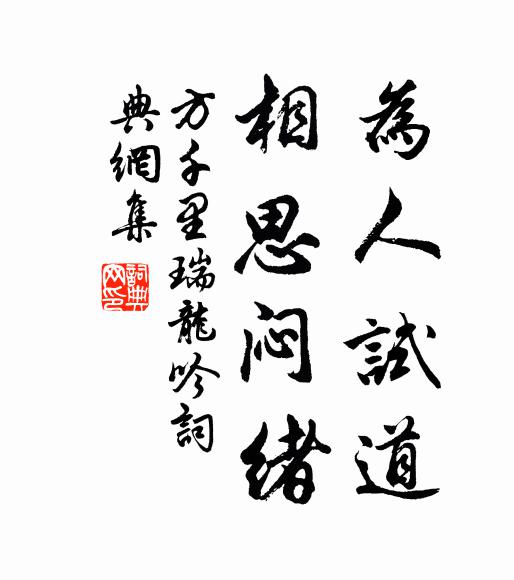 為人試道
相思悶緒
方千里瑞龍吟詞
典網集
詞典網印